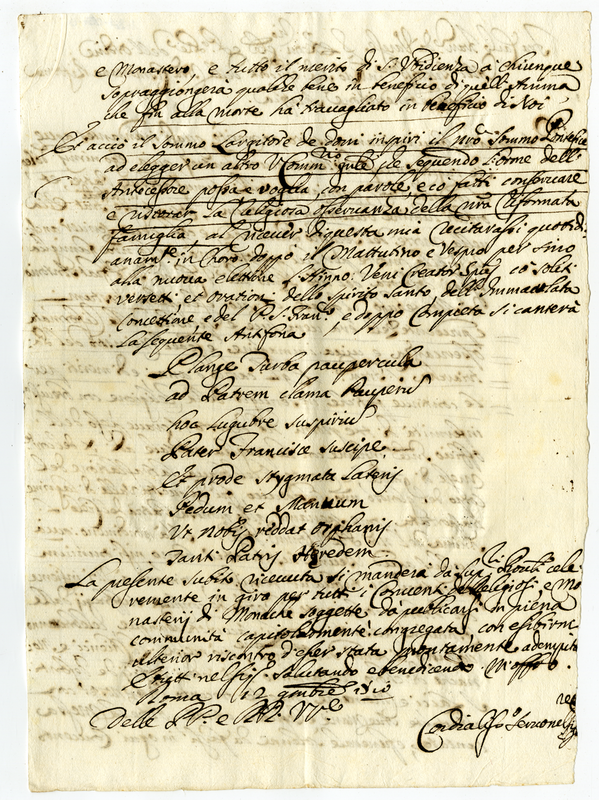 e Monastero, e tutto il merito di S.ta Vbidienza a chiunque
sopraggiongerà qualche bene in beneficio di quell'Anima
che fin alla morte hà travagliato in beneficio di Noi.
Et acciò il Sommo Largitore de doni inspiri il nro Sommo Pontefice
ad elegger un altro V. Comm.rio Gnle che seguendo l'orme dell'
Antecessore possa e voglia con parole, e co fatti conservare
e ristorar la Religiosa osservanza della nra Riformata
famiglia, al ricever di questa mia recitarassi quotidi
anam.te in Choro doppo il Mattutino e Vespro per sino
alla nuova elettione l'Hinno Veni Creator Sps co soliti
versetti et oration dello Spirito Santo, dell'Immacolata
Concettione e del P. S. Fran.co, e doppo Compieta si canterà
la seguente Antifona
Plange turba paupercula
ad Patrem clama Pauperis
hoc lugubre suspirium
Pater Francisce suscipe
Et prode stygmata Lateris
Pedum et Manuum
Vt nobis reddat orphanis
tanti Patris Heredem.
La presente subito ricevuta si manderà da cele
remente in giro per tutti i Conventi de Religiosi, e Mo
nasterij di Monache soggette da publicarsi in piena
communità capitolarmente congregata, con esibirmi
ulterior riscontro d'esser stata prontamente adempita
salutando e benedicendo
Roma 12
Delle PP. e RR. VV.